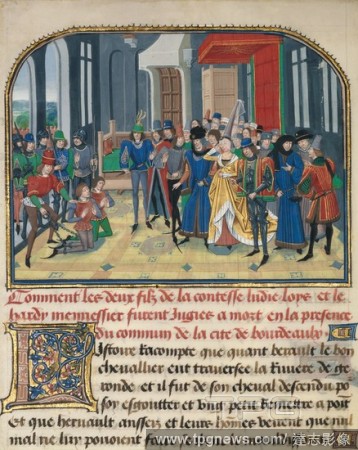 Comment les deux filz de la contesse ludie lops et le
hardy mennessier furent Jugies a mort en la presence
du commun de la cite de bourdeaulx
L istoire Racompte que quant berault le bon
chevallier eut traversee la Riviere de ge
ronde et il fut de son cheval descendu po
soy esgoutter et Ung petit
Et que hernault anssers et leurs hommes veirent que nul
mal ne luy povoient
www.tpgnews.com/達志影像